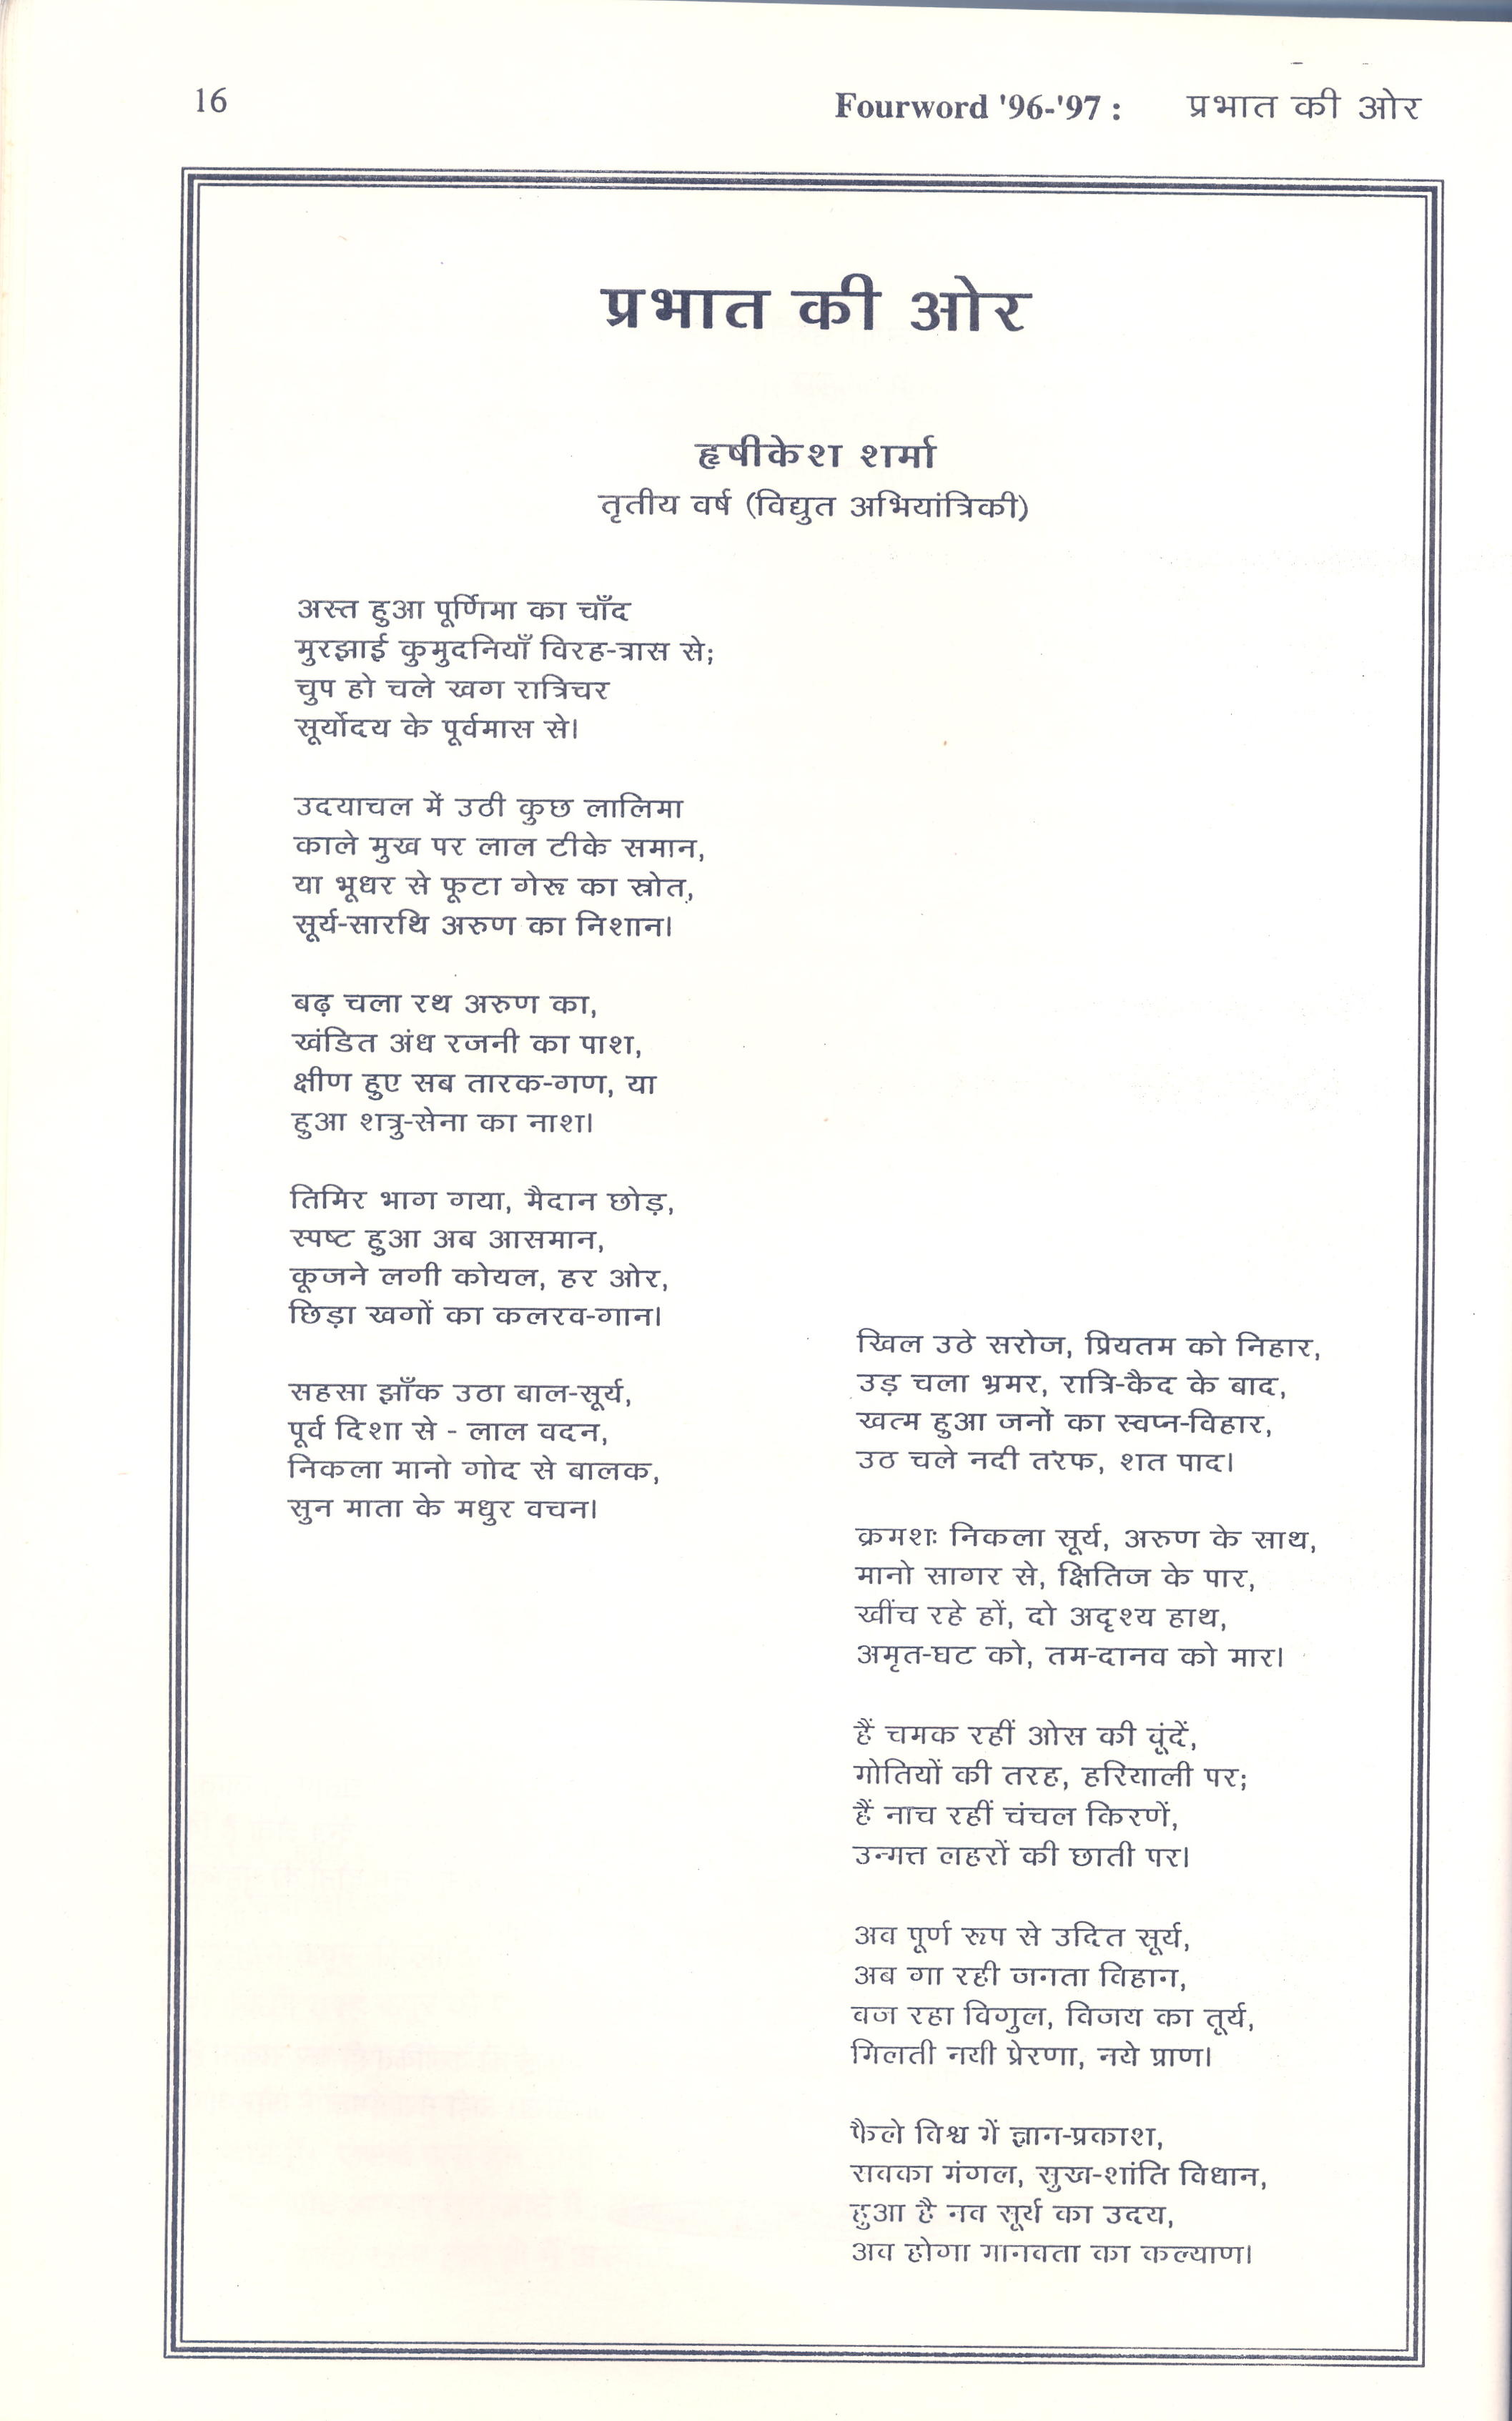 16
Fourword '96-'97 : प्रभात की ओर
प्रभात की ओर
हृषीकेश शर्मा
तृतीय वर्ष (विद्युत अभियांत्रिकी)
अस्त हुआ पूर्णिमा का चाँद
मुरझाई कुमुदनियाँ विरह-त्रास से;
चुप हो चले खग रात्रिचर
सूर्योदय के पूर्वमास से।
उदयाचल में उठी कुछ लालिमा
काले मुख पर लाल टीके समान,
या भूधर से फूटा गेरू का स्रोत,
सूर्य-सारथि अरुण का निशान।
बढ़ चला रथ अरुण का,
खंडित अंध रजनी का पाश,
क्षीण हुए सब तारक-गण, या
हुआ शत्रु-सेना का नाश।
तिमिर भाग गया, मैदान छोड़,
स्पष्ट हुआ अब आसमान,
कूजने लगी कोयल, हर ओर,
छिड़ा खगों का कलरव-गान।
सहसा झाँक उठा बाल-सूर्य,
पूर्व दिशा से - लाल वदन,
निकला मानो गोद से बालक,
सुन माता के मधुर वचन।
खिल उठे सरोज, प्रियतम को निहार,
उड़ चला भ्रमर, रात्रि-कैद के बाद,
खत्म हुआ जनों का स्वप्न-विहार,
उठ चले नदी तरफ, शत पाद।
क्रमशः निकला सूर्य, अरुण के साथ,
मानो सागर से, क्षितिज के पार,
खींच रहे हों, दो अदृश्य हाथ,
अमृत-घट को, तम-दानव को मार।
हैं चमक रहीं ओस की बूंदें,
मोतियों की तरह, हरियाली पर;
हैं नाच रहीं चंचल किरणें,
उन्मत्त लहरों की छाती पर।
अब पूर्ण रूप से उदित सूर्य,
अब गा रही जनता विहान,
बज रहा बिगुल, विजय का तूर्य,
मिलती नयी प्रेरणा, नये प्राण।
फैले विश्व में ज्ञान-प्रकाश,
सबका मंगल, सुख-शांति विधान,
हुआ है नव सूर्य का उदय,
अब होगा मानवता का कल्याण।